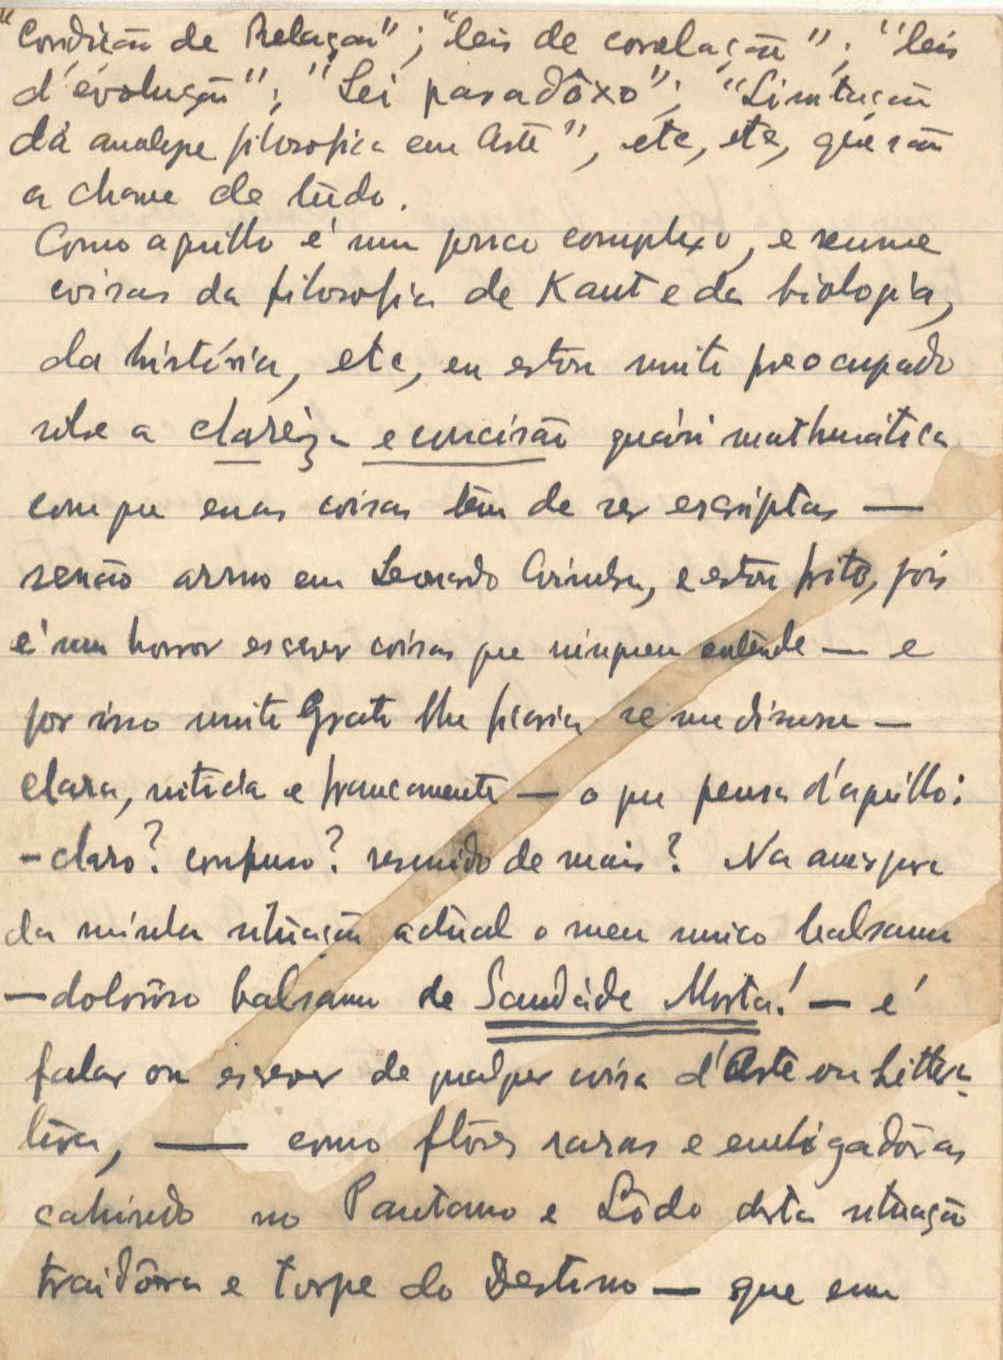 "Condição de Relaçao"; "leis de correlação"; "leis
d'évolução"; "Lei paradôxo"; "Limitação
da analyse filosofica em Arte", etc, etc, que são
a chave de tudo.
Como aquillo é um pouco complexo, e reune
coisas da filosofia de Kant e da biologia,
da história, etc, eu estou muito preocupado
sobre a clarêza e concisão quási mathmática
com que essas coisas têm de ser escriptas —
senão asrno em Leonardo Coimbra, e estou frito, pois
é um horror escrever coisas que ninguem entende — e
por isso muito Grato lhe ficaria se me dissesse —
clara, nitida e francamente — o que pensa d'aquillo:
- claro? confuso? resumido de mais? Na
da minha situação actual o meu unico balsamo
— dolorôso balsamo de Saudáde Morta! — é
falar ou escrever de qualquer coisa d'Arte ou Littera-
tura, — como flôres raras e
cahindo no Pantano e Lôdo desta situação
traidôra e torpe do Destino — que em